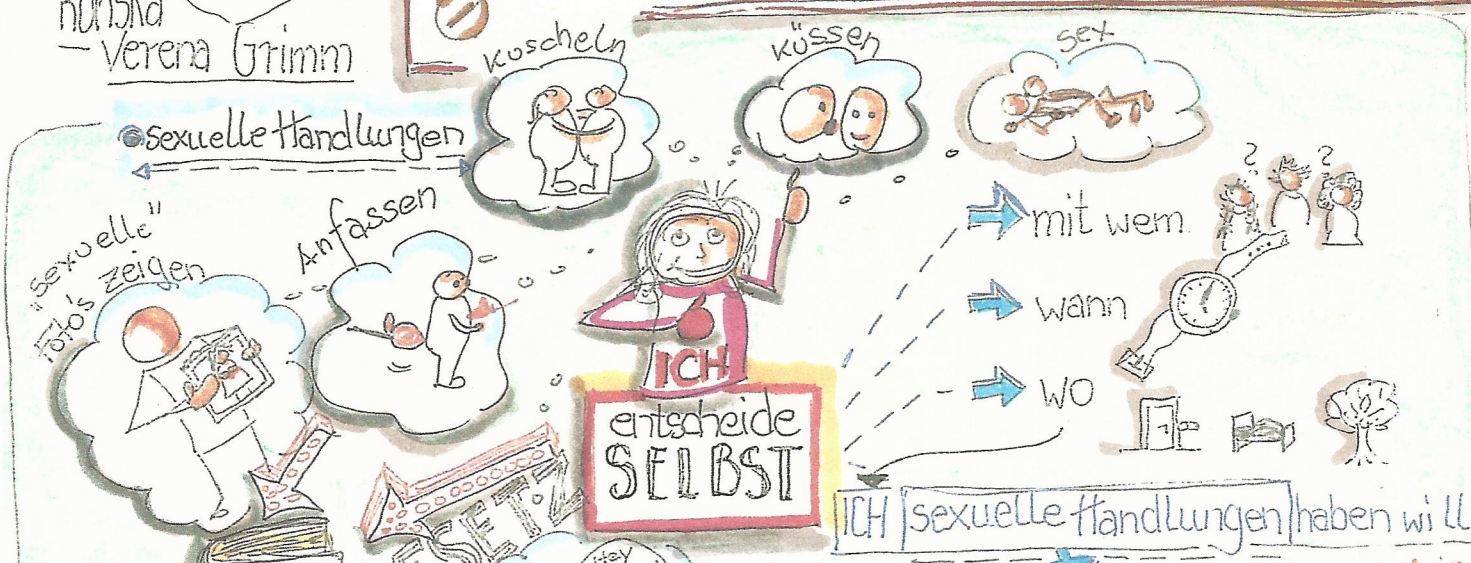 Verena Grimm
sexuelle Handlungen
Kuscheln
Küssen
Sex
"sexuelle"
Foto's zeigen
Anfassen
ICH
entscheide
SELBST
mit wem
wann
wo
? ?
ICH sexuelle Handlungen haben will